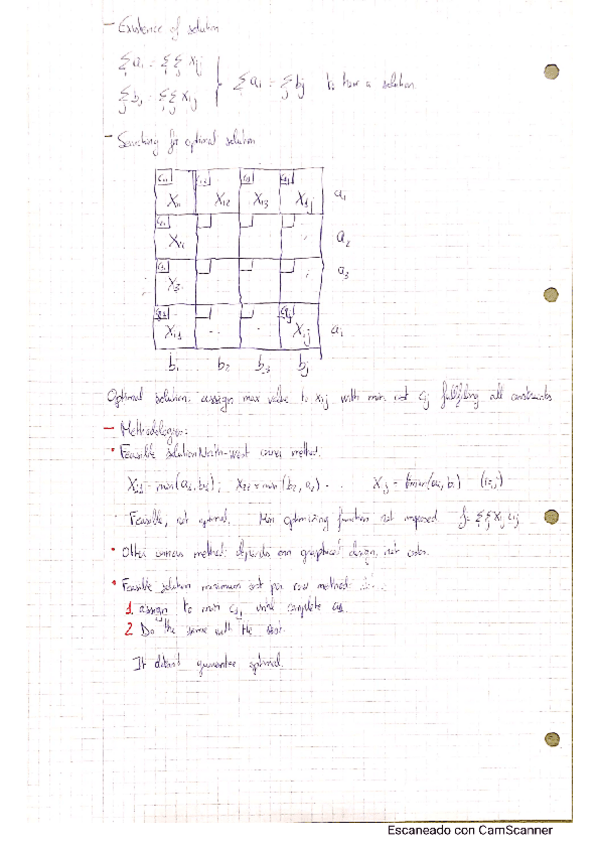 - Existence of solution
Σ ai = ΣΣ Xij
Σ bj = ΣΣ Xij
Σ ai = Σ bj to have a solution
- Searching for optimal solution
X11 X12 X13 X1j a1
a2
a3
Xij ai
b1 b2 b3 bj
Optimal solution: assign max value to Xij with min cost Cij fulfilling all constraints
- Methodologies:
• Feasible solution North-west corner method.
(i=j)
Feasible, not optimal. Min optimizing function not imposed f = ΣΣ Xij Cij
• Other corners method: depends on graphical design, not costs.
• Feasible solution cost per row method:
1. assign to min until complete
2. Do the same with the
It doesnt guarantee optimal.
Escaneado con CamScanner